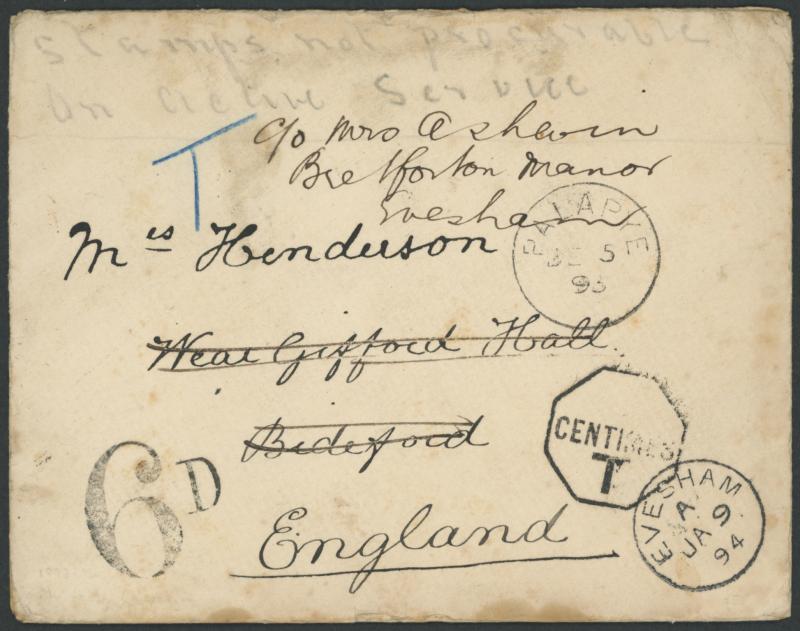 Stamps not procurable
On Active Service
T
c/o Mrs Ashwin
Bretforton Manor
Evesham
Mrs Henderson
PALAPYE
DE 5
93
Wear Gifford Hall
Bideford
England
6D
CENTIMES
T
EVESHAM
A
JA 9
94